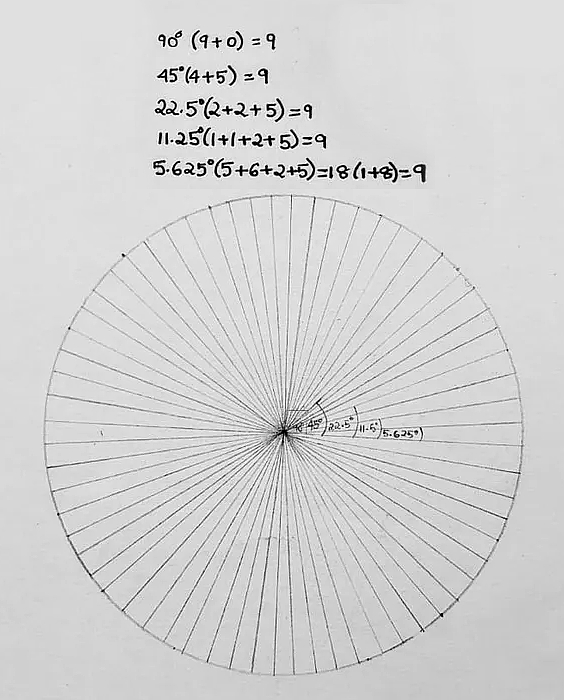 90° (9+0) = 9
45°(4+5) = 9
22.5°(2+2+5) = 9
11.25°(1+1+2+5)=9
5.625°(5+6+2+5)=18(1+8)=9
90° 45° 22.5° 11.5° 5.625°